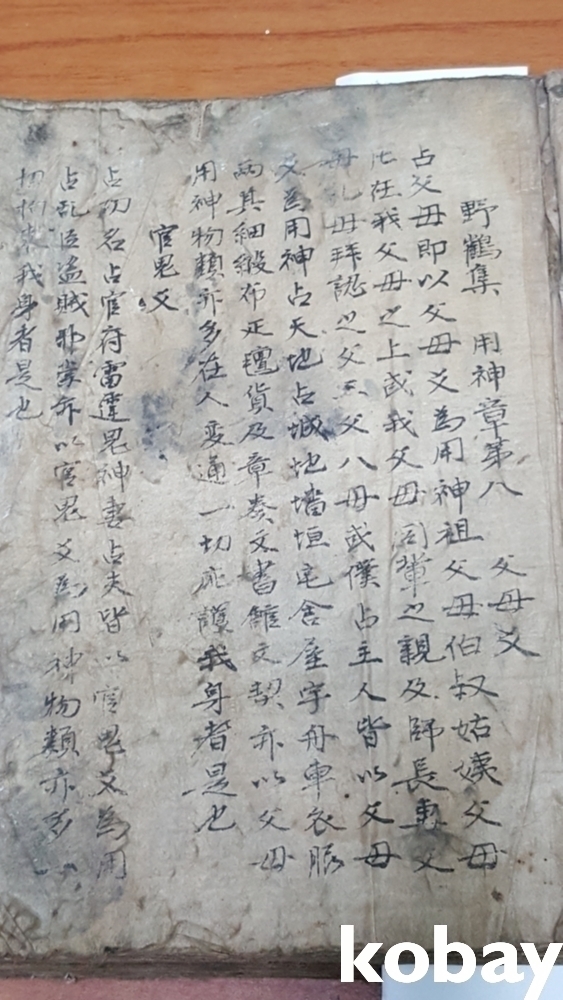 野鶴集 用神章第八 父母爻
占父母即以父母爻為用神祖父母伯叔姑姨父母
凡在我父母之上或我父母同輩之親及師長妻父
母乳母拜認之父三父八母或僕占主人皆以父母
爻為用神占天地占城池墻垣宅舍屋宇舟車衣服
雨具細緞布疋氊貨及章奏文書館文契亦以父母
用神物類亦多在人変通一切庇護我身者是也
官鬼爻
占功名占官府雷霆鬼神妻占夫皆以官鬼爻為用
占乱臣盗賊邪祟亦以官鬼爻為用神物類亦多一
切拘束我身者是也
kobay